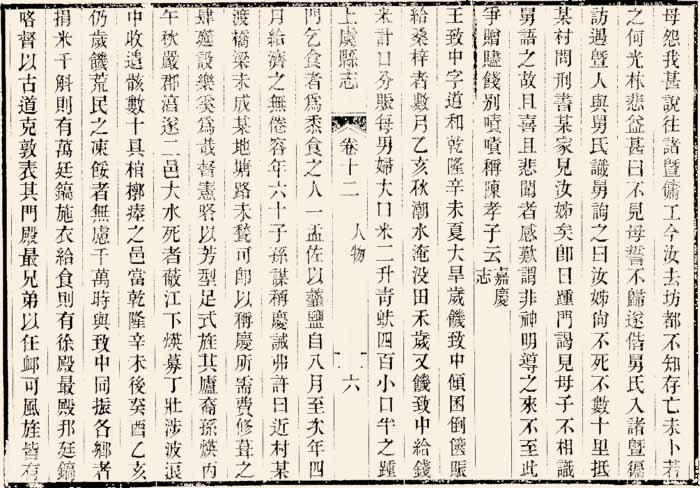 母怨我甚説往諸曁傭工今汝去坊都不知存亡未卜若
之何光栐悲益甚曰不見母誓不歸遂偕舅氏入諸曁徧
訪遇曁人與舅氏識舅詢之曰汝姊尙不死不數十里抵
某村問刑書某家見汝姊矣卽日踵門謁見母子不相識
舅語之故且喜且悲聞者感歎謂非神明導之來不至此
爭贈贐餞别嘖嘖稱陳孝子云嘉慶志
王致中字道和乾隆辛未夏大旱歲饑致中傾囷倒篋賑
給桑梓者數月乙亥秋潮水淹没田禾歲又饑致中給錢
米計口分賑每男婦大口米二升靑蚨四百小口半之踵
上虞縣志 卷十二 人物 六
門乞食者爲黍食之人一盂佐以虀鹽自八月至次年四
月給濟之無倦容年六十子孫謀稱慶誡弗許曰近村某
渡橋梁未成某地塘路未甃可卽以稱慶所需費修葺之
肆筵設樂奚爲哉督憲咯以芳型足式旌其廬裔孫煐丙
午秋嚴郡涫遂二邑大水死者蔽江下煐募丁壯涉波浪
中收遺骸數十具棺槨瘞之邑當乾隆辛未後癸酉乙亥
仍歲饑荒民之凍餒者無慮千萬時與致中同振各鄕者
捐米千斛則有萬廷鎬施衣給食則有徐殿最殿邦廷鎬
咯督以古道克敦表其門殿最兄弟以任卹可風旌皆有